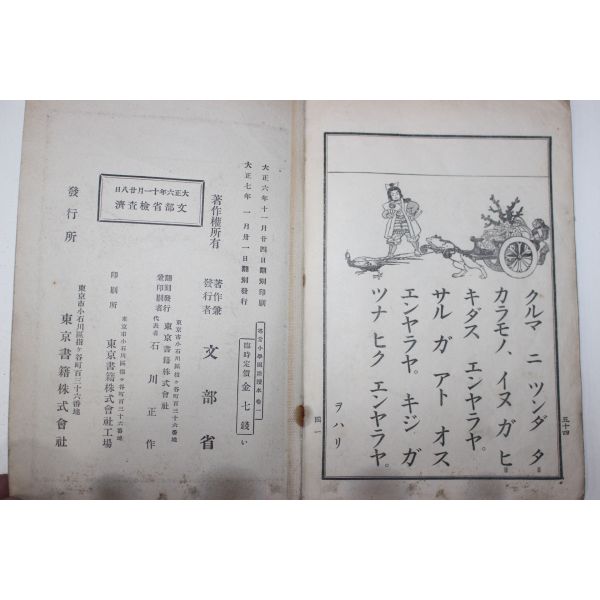 五十四
クルマ ニ ツンダ タ
カラモノ、イヌ ガ ヒ
キダス エンヤラヤ。
サル ガ アト オス
エンヤラヤ。 キジ ガ
ツナ ヒク エンヤラヤ。
ヲハリ
國一
大正六年十一月廿四日翻刻印刷
大正七年 一月卅一日翻刻發行
尋常小學國語讀本 卷一
臨時定價金七錢
い
著作權所有
著作兼
發行者
文部省
東京市小石川區指ヶ谷町百三十六番地
翻刻發行
兼印刷者
東京書籍株式會社
代表者 石川正作
東京市小石川區指ヶ谷町百三十六番地
印刷所
東京書籍株式會社工場
大正六年十一月廿八日
文部省檢查濟
發行所
東京市小石川區指ヶ谷町百三十六番地
東京書籍株式會社